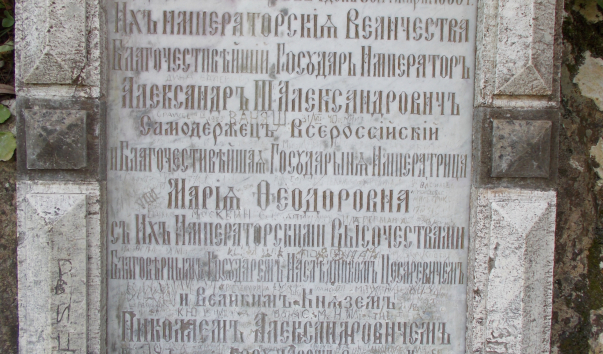 Ихъ Императорскія Величества
Благочестивѣйшій Государь Императоръ
Александръ III Александровичъ
Самодержецъ Всероссійскій
и Благочестивѣйшая Государыня Императрица
Марія Ѳеодоровна
съ Ихъ Императорскими Высочествами
Благовѣрнымъ Государемъ Наслѣдникомъ Цесаревичемъ
и Великимъ Княземъ
Николаемъ Александровичемъ